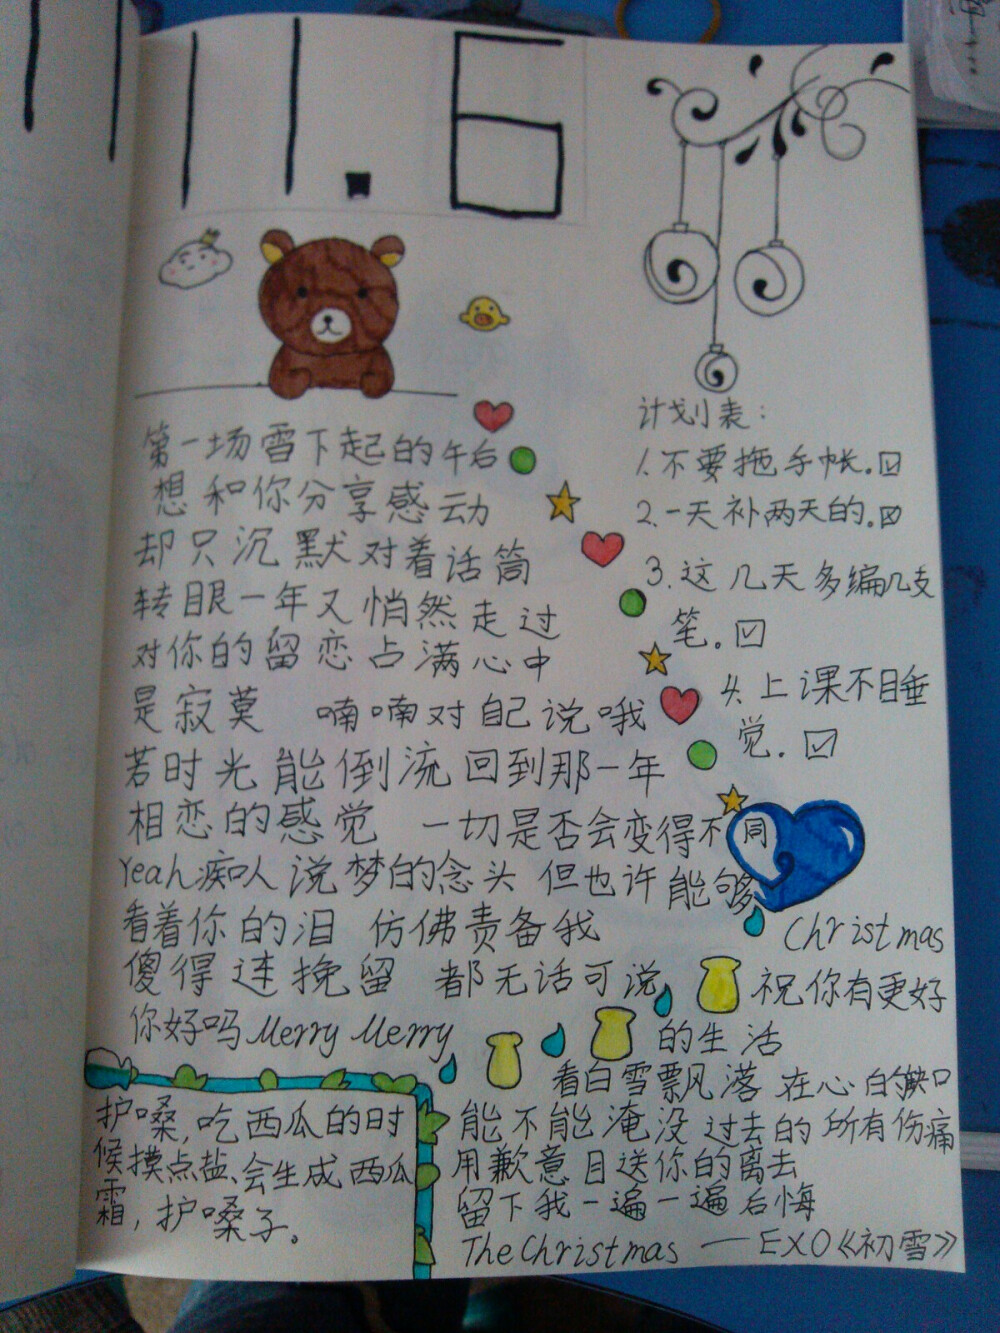 11.6
第一场雪下起的午后
想和你分享感动
却只沉默对着话筒
转眼一年又悄然走过
对你的留恋占满心中
是寂莫 喃喃对自己说哦
若时光能倒流回到那一年
相恋的感觉 一切是否会变得不同
Yeah痴人说梦的念头 但也许能够
看着你的泪 仿佛责备我
傻得连挽留 都无话可说
你好吗Merry Merry
Christmas
祝你有更好
的生活
看白雪飘落 在心的缺口
能不能淹没过去的所有伤痛
用歉意目送你的离去
留下我一遍一遍后悔
The Christmas — EXO《初雪》
计划表:
1.不要拖手帐.☑
2.一天补两天的.☑
3.这几天多编几支
笔.☑
4.上课不睡
觉.☑
护嗓,吃西瓜的时
候摸点盐、会生成西瓜
霜,护嗓子。